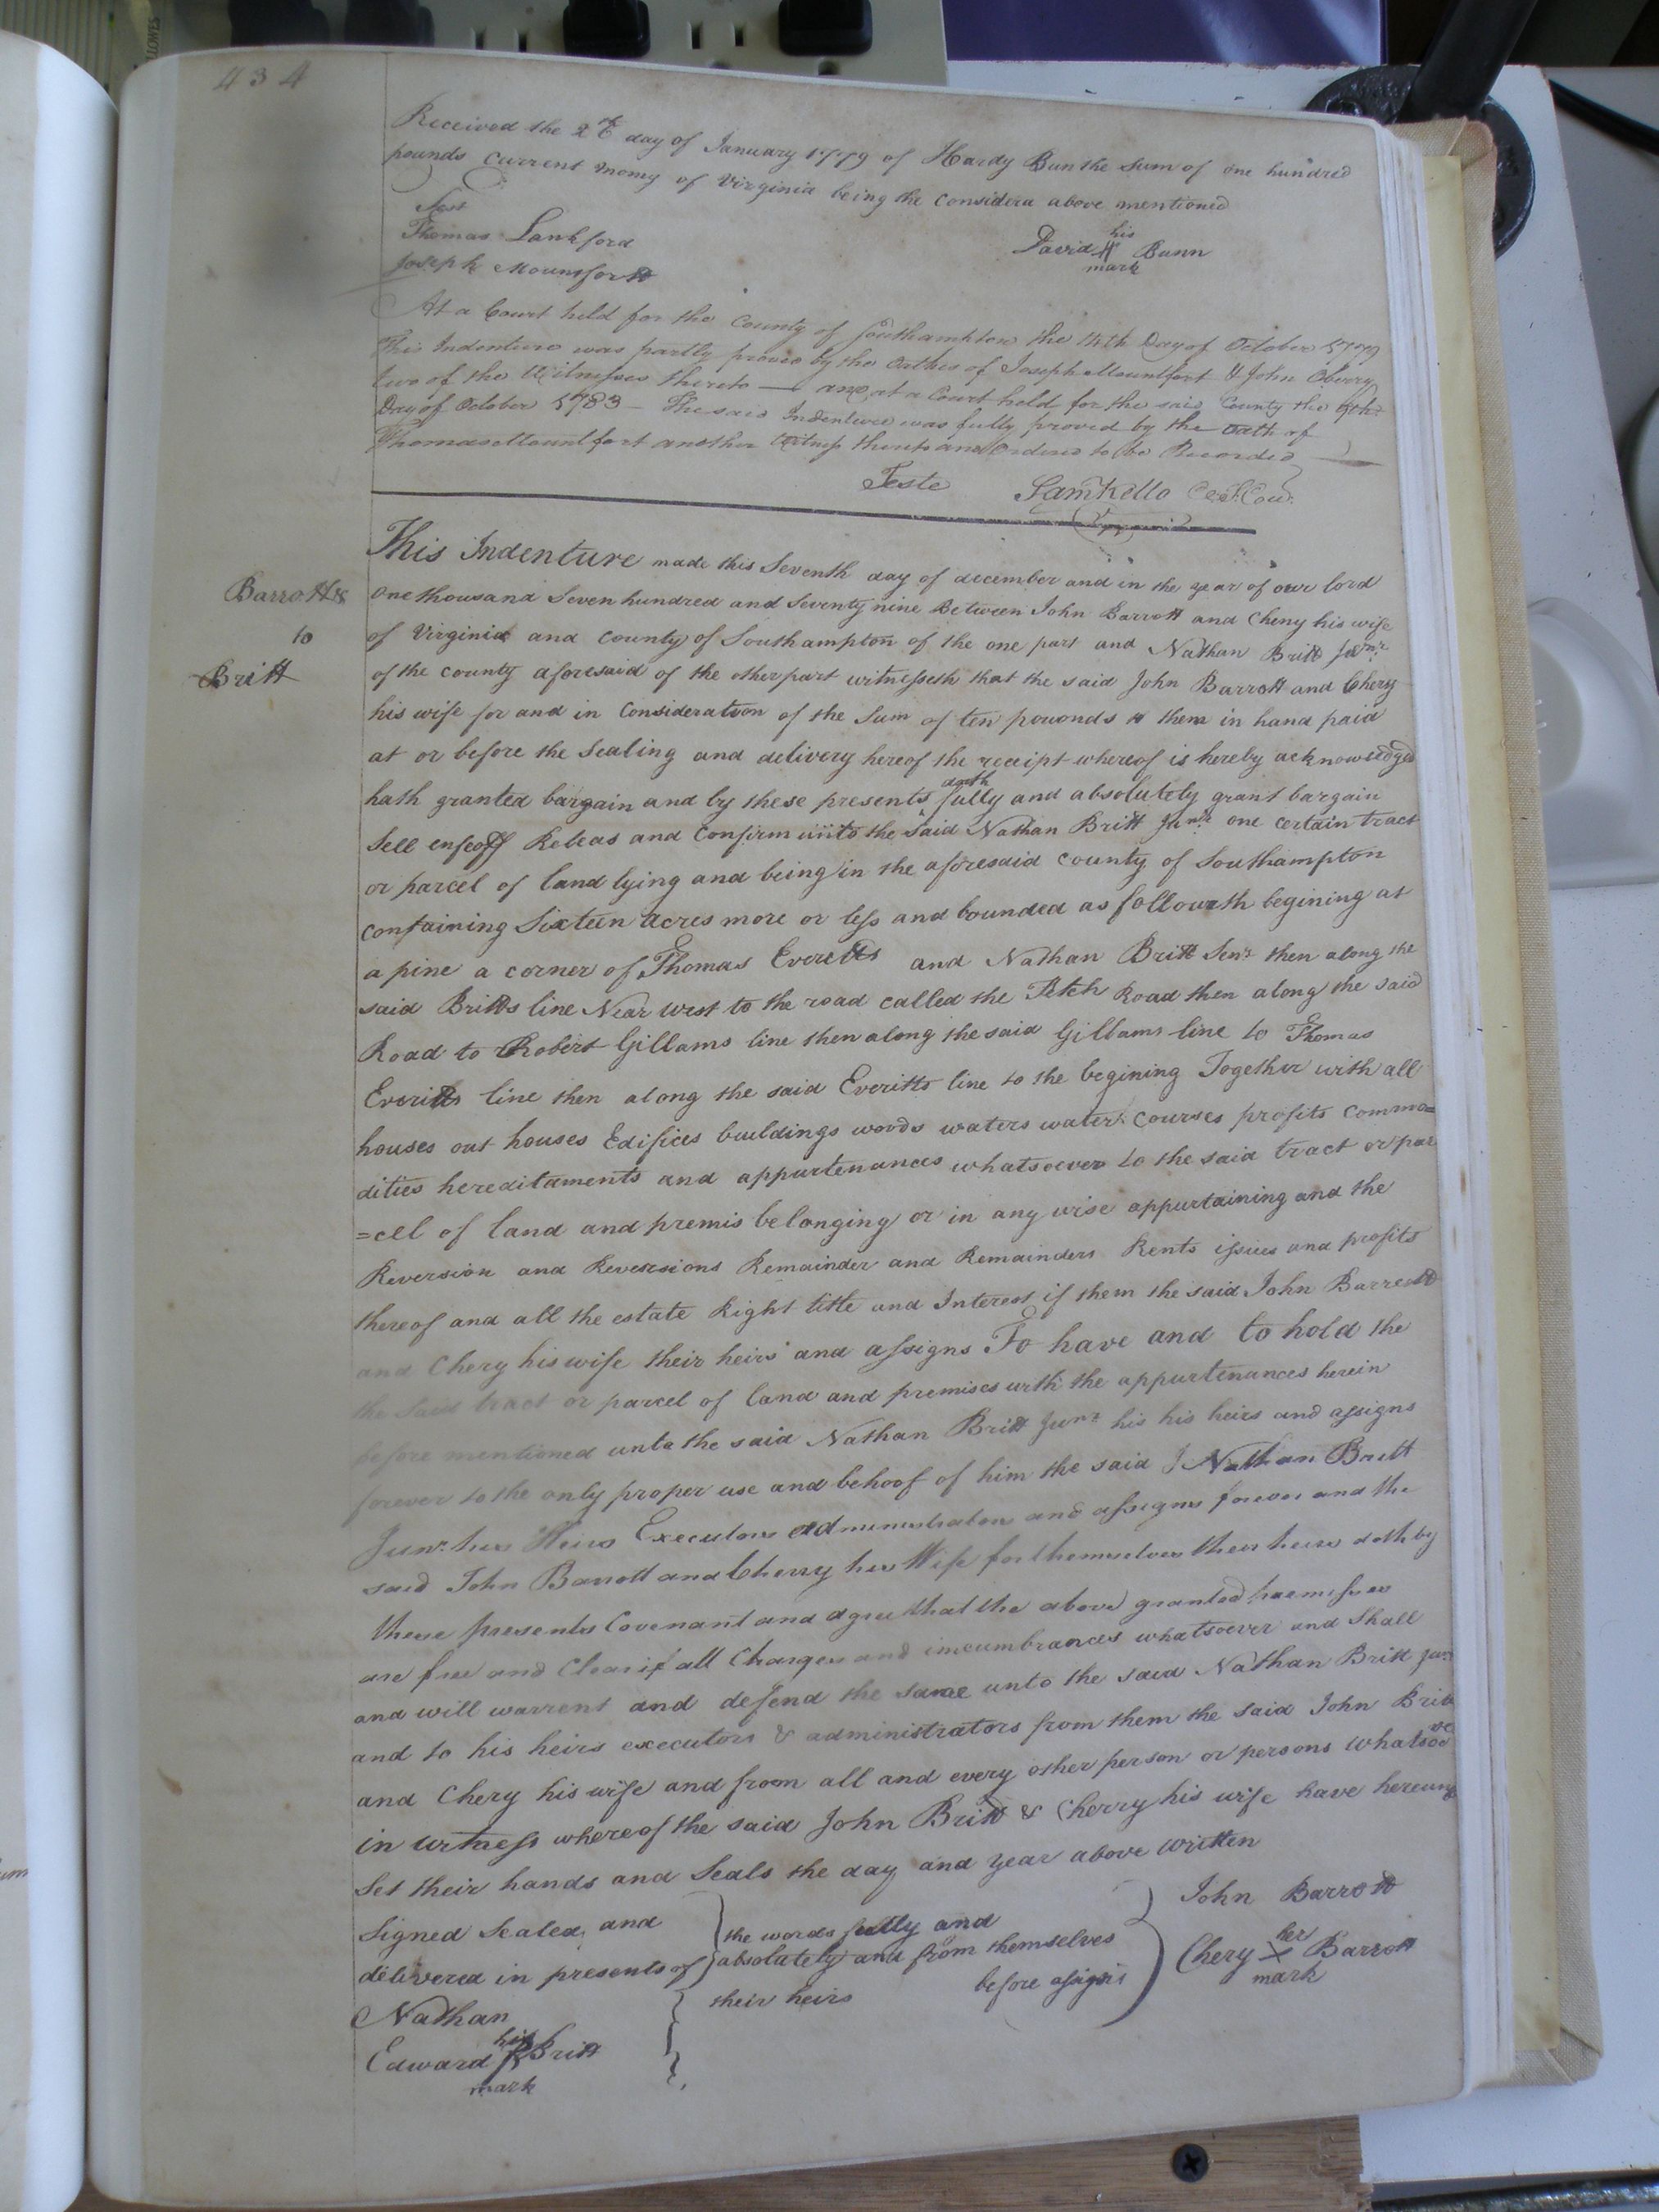 434
Received the 2d day of January 1779 of Hardy Bun the Sum of one hundred
pounds Current money of Virginia being the Considera above mentioned
Test
Thomas Lankford
Joseph Mountfort
David his mark Bunn
At a Court held for the County of Southampton the 14th Day of October 1779
This Indenture was partly proved by the Oathes of Joseph Mountfort & John
two of the Witnesses thereto — and at a Court held for the said County the
Day of October 1783 — The said Indenture was fully proved by the Oath of
Thomas Mountfort another Witness thereto and Ordered to be Recorded
Teste Saml Kello
Barrott &
to
Britt
This Indenture made this Seventh day of december and in the year of our lord
One thousand Seven hundred and Seventy nine Between John Barrott and Cheny his wife
of Virginia and County of Southampton of the one part and Nathan Britt Junr
of the County aforesaid of the other part witnesseth that the said John Barrott and Chery
his wife for and in Consideration of the Sum of ten pouonds to them in hand paid
at or before the Sealing and delivery hereof the receipt whereof is hereby acknowledged
hath granted bargain and by these presents doth fully and absolutely grant bargain
Sell enfeoff Releas and Confirm unto the said Nathan Britt Junr one certain tract
or parcel of land lying and being in the aforesaid County of Southampton
containing Sixteen acres more or less and bounded as followeth begining at
a pine a corner of Thomas Everetts and Nathan Britt Senr then along the
said Britts line Near West to the road called the Road then along the said
Road to Robert Gillams line then along the said Gillams line to Thomas
Everitts line then along the said Everitts line to the begining Together with all
houses out houses Edifices buildings woods waters water Courses profits Commo=
dities hereditaments and appurtenances whatsoever to the said tract or par
=cel of land and premis belonging or in any wise appurtaining and the
Reversion and Reversions Remainder and Remainders Rents issues and profits
thereof and all the estate Right title and Interest if them the said John Barrott
and Chery his wife their heirs and assigns To have and to hold the
the Said tract or parcel of land and premises with the appurtenances herein
before mentioned unto the said Nathan Britt Junr his his heirs and assigns
forever to the only proper use and behoof of him the said Nathan Britt
Junr his Heirs Executors Administrators and assigns forever and the
said John Barrott and Cherry his Wife for themselves their heirs doth by
these presents Covenant and agree that the above granted premisses
are free and Clear if all Charges and incumbrances whatsoever and Shall
and will warrent and defend the same unto the said Nathan Britt Junr
and to his heirs executors & administrators from them the said John Britt
and Chery his wife and from all and every other person or persons whatsoe
in witness whereof the said John Britt & Cherry his wife have hereun
Set their hands and Seals the day and year above written
Signed Sealed and
delivered in presents of
the words fully and
absolutely and from themselves
their heirs before assigns
John Barrott
Chery her mark Barrott
Nathan
Edward his mark Britt